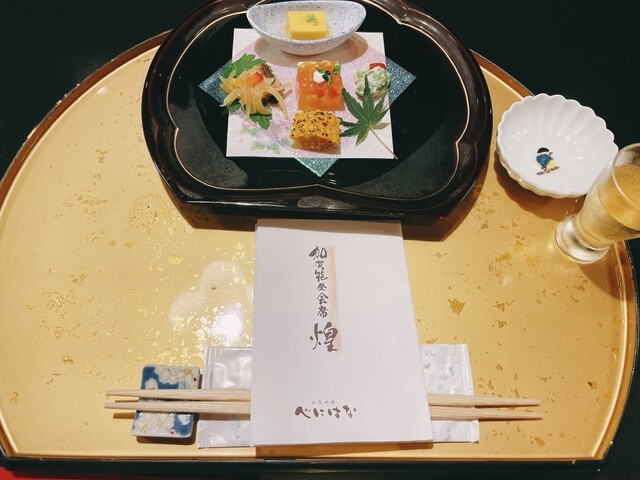 加賀能登会席
煌
べにはな